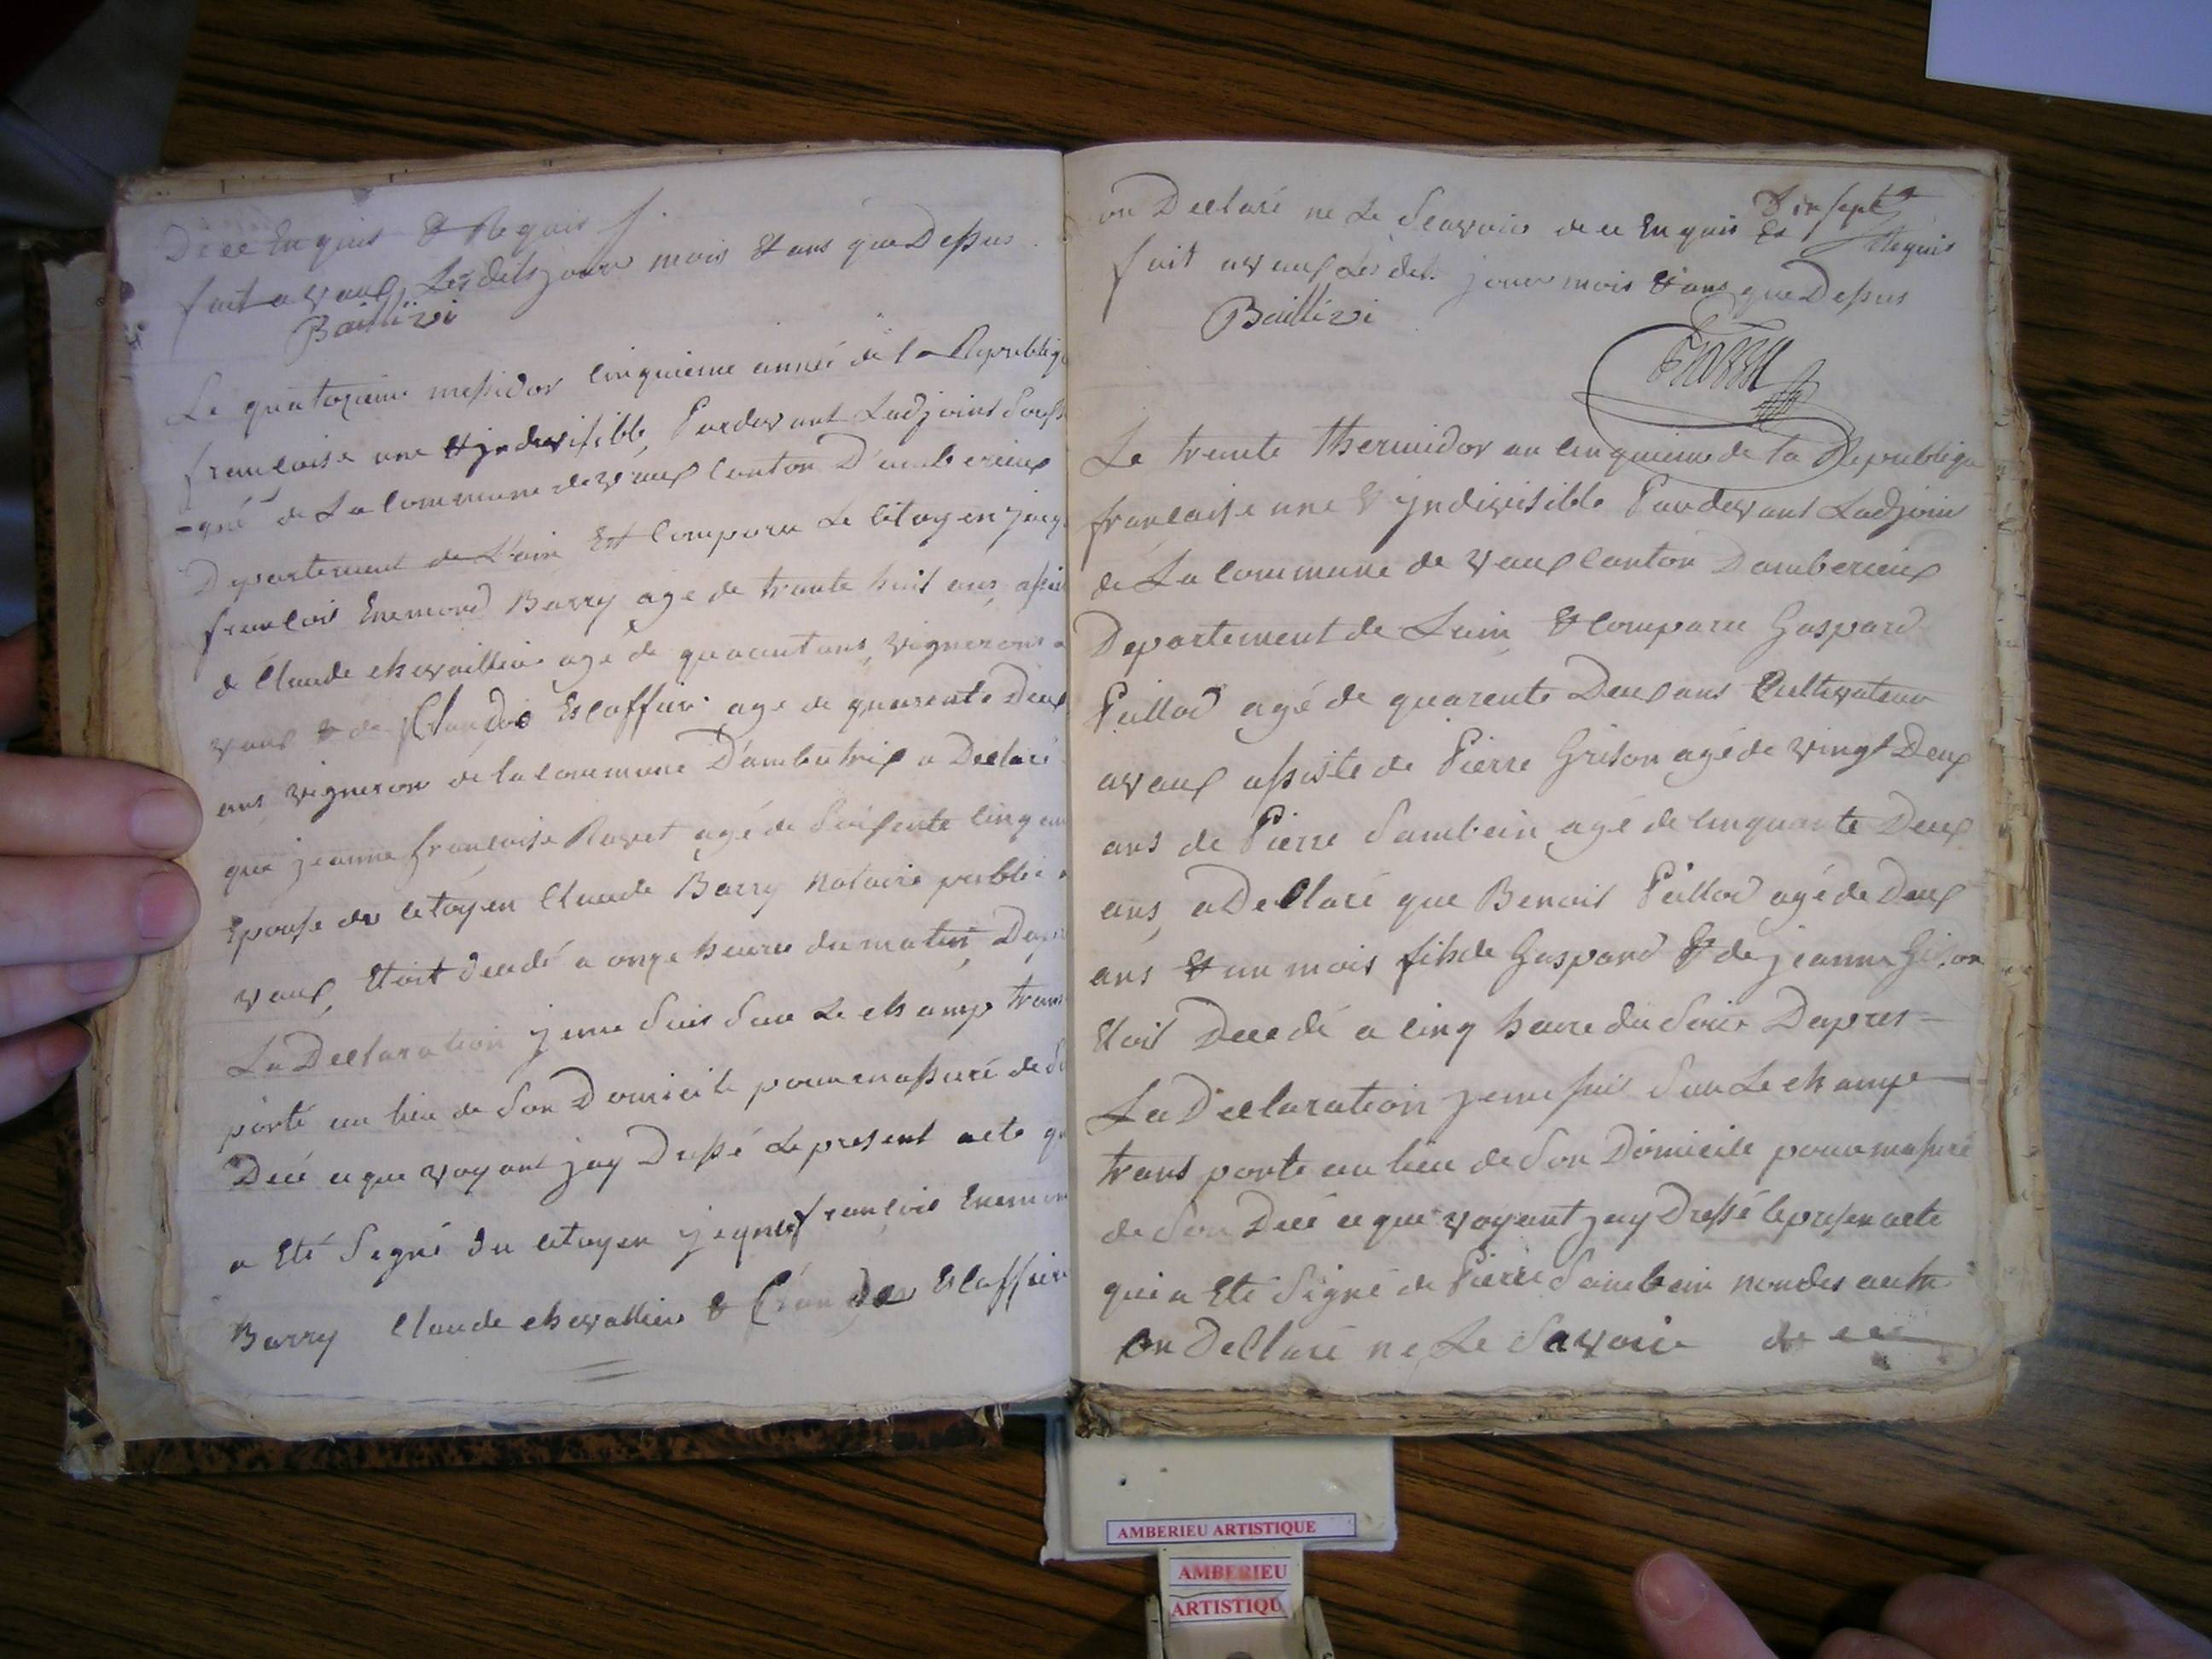 De ce Enquis & Requis
fait a vaux Lesdits jour mois & ans que Dessus
Baillivi
Le quatorzieme messidor cinquieme année de la Republiq
francaise une & jndivisible Pardevant Ladjoint Souss
-gné de La Commune de vaux Canton D'amberieux
Departement de Lain Est Comparu Le Citoyen jacq
francois Enemond Barry age de trante huit ans, assis
de Claude chevaillier agé de quarant ans, vignerons a
vaux & de Claude Escoffier age de quarente Deux
ans, vigneron de la commune D'ambutrix a Declaré
que jeanne francoise Ravet agé de Soissente Cinq an
Epouse du citoyen Claude Barry Notaire public a
vaux, Etoit decedé a onze heures du matin, Dapr
La Declaration je me suis Sur Le champ trans
porté au lieu de Son Domicile pour massuré de So
Decé ce que voyant jay Dressé Le present acte qu
a Eté Signé du citoyen jaques francois Enemon
Barry Claude chevallier & Claude Escoffier
on Declaré ne Le Scavoir de ce Enquis & Requis
fait a vaux Les dit. jour mois & ans que Dessus
Baillivi
Le trente thermidor an cinquieme de la Republiqu
francaise une & jndivisible Pardevant Ladjoin
de La Commune de vaux Canton Damberieux
Departement de Lain, & Comparu Gaspard
Peillod agé de quarente Deux ans Cultivateur
a vaux assiste de Pierre Grison agé de vingt Deux
ans de Pierre Sambein agé de cinquante Deux
ans, a Declaré que Benoit Peillod agé de Deux
ans & un mois fils de Gaspard & de jeanne Grison
Etoit Decedé a Cinq heure du Soir Dapres
La Declaration je me suis Sur Le champ
trans porte au lieu de Son Domicile pour massuré
de Son Decé ce que voyant jay Dressé le presen acte
qui a Eté Signé de Pierre Sambein non des autre
on Declaré ne Le Savoir de ce
AMBERIEU ARTISTIQUE
AMBERIEU
ARTISTIQU